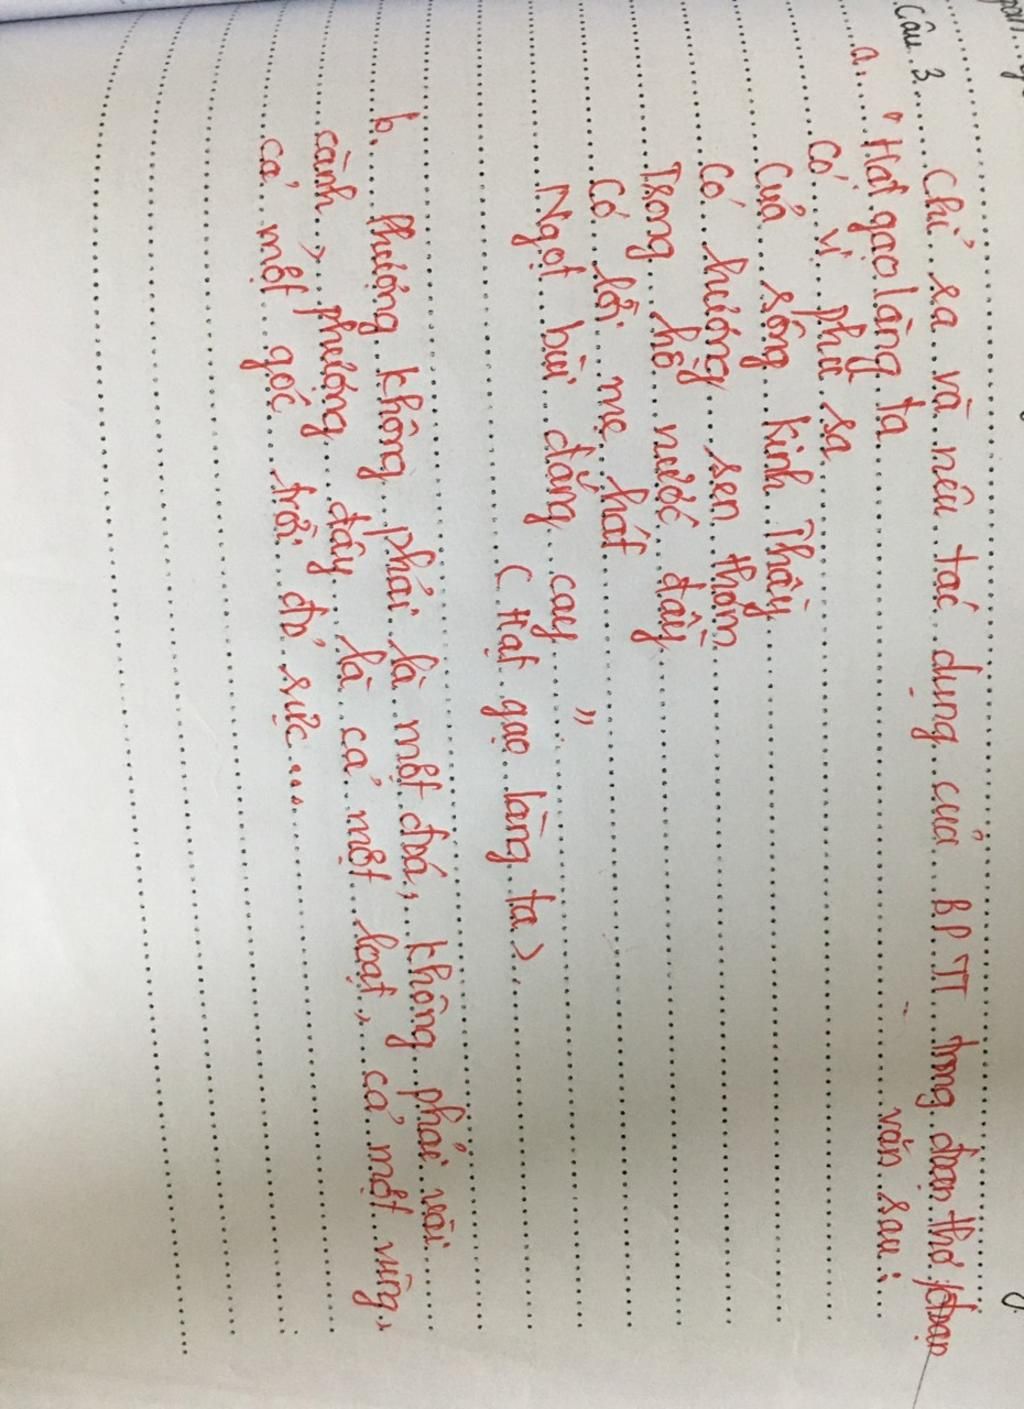 Câu 3. Chỉ ra và nêu tác dụng của BPTT trong đoạn thơ, đoạn
văn sau:
a. "Hạt gạo làng ta
Có vị phù sa
Của sông Kinh Thầy
Có hương sen thơm
Trong hồ nước đầy
Có lời mẹ hát
Ngọt bùi đắng cay"
(Hạt gạo làng ta).
b. Phượng không phải là một đoá, không phải vài
cành, phượng đây là cả một loạt, cả một vùng,
cả một góc trời đỏ rực...